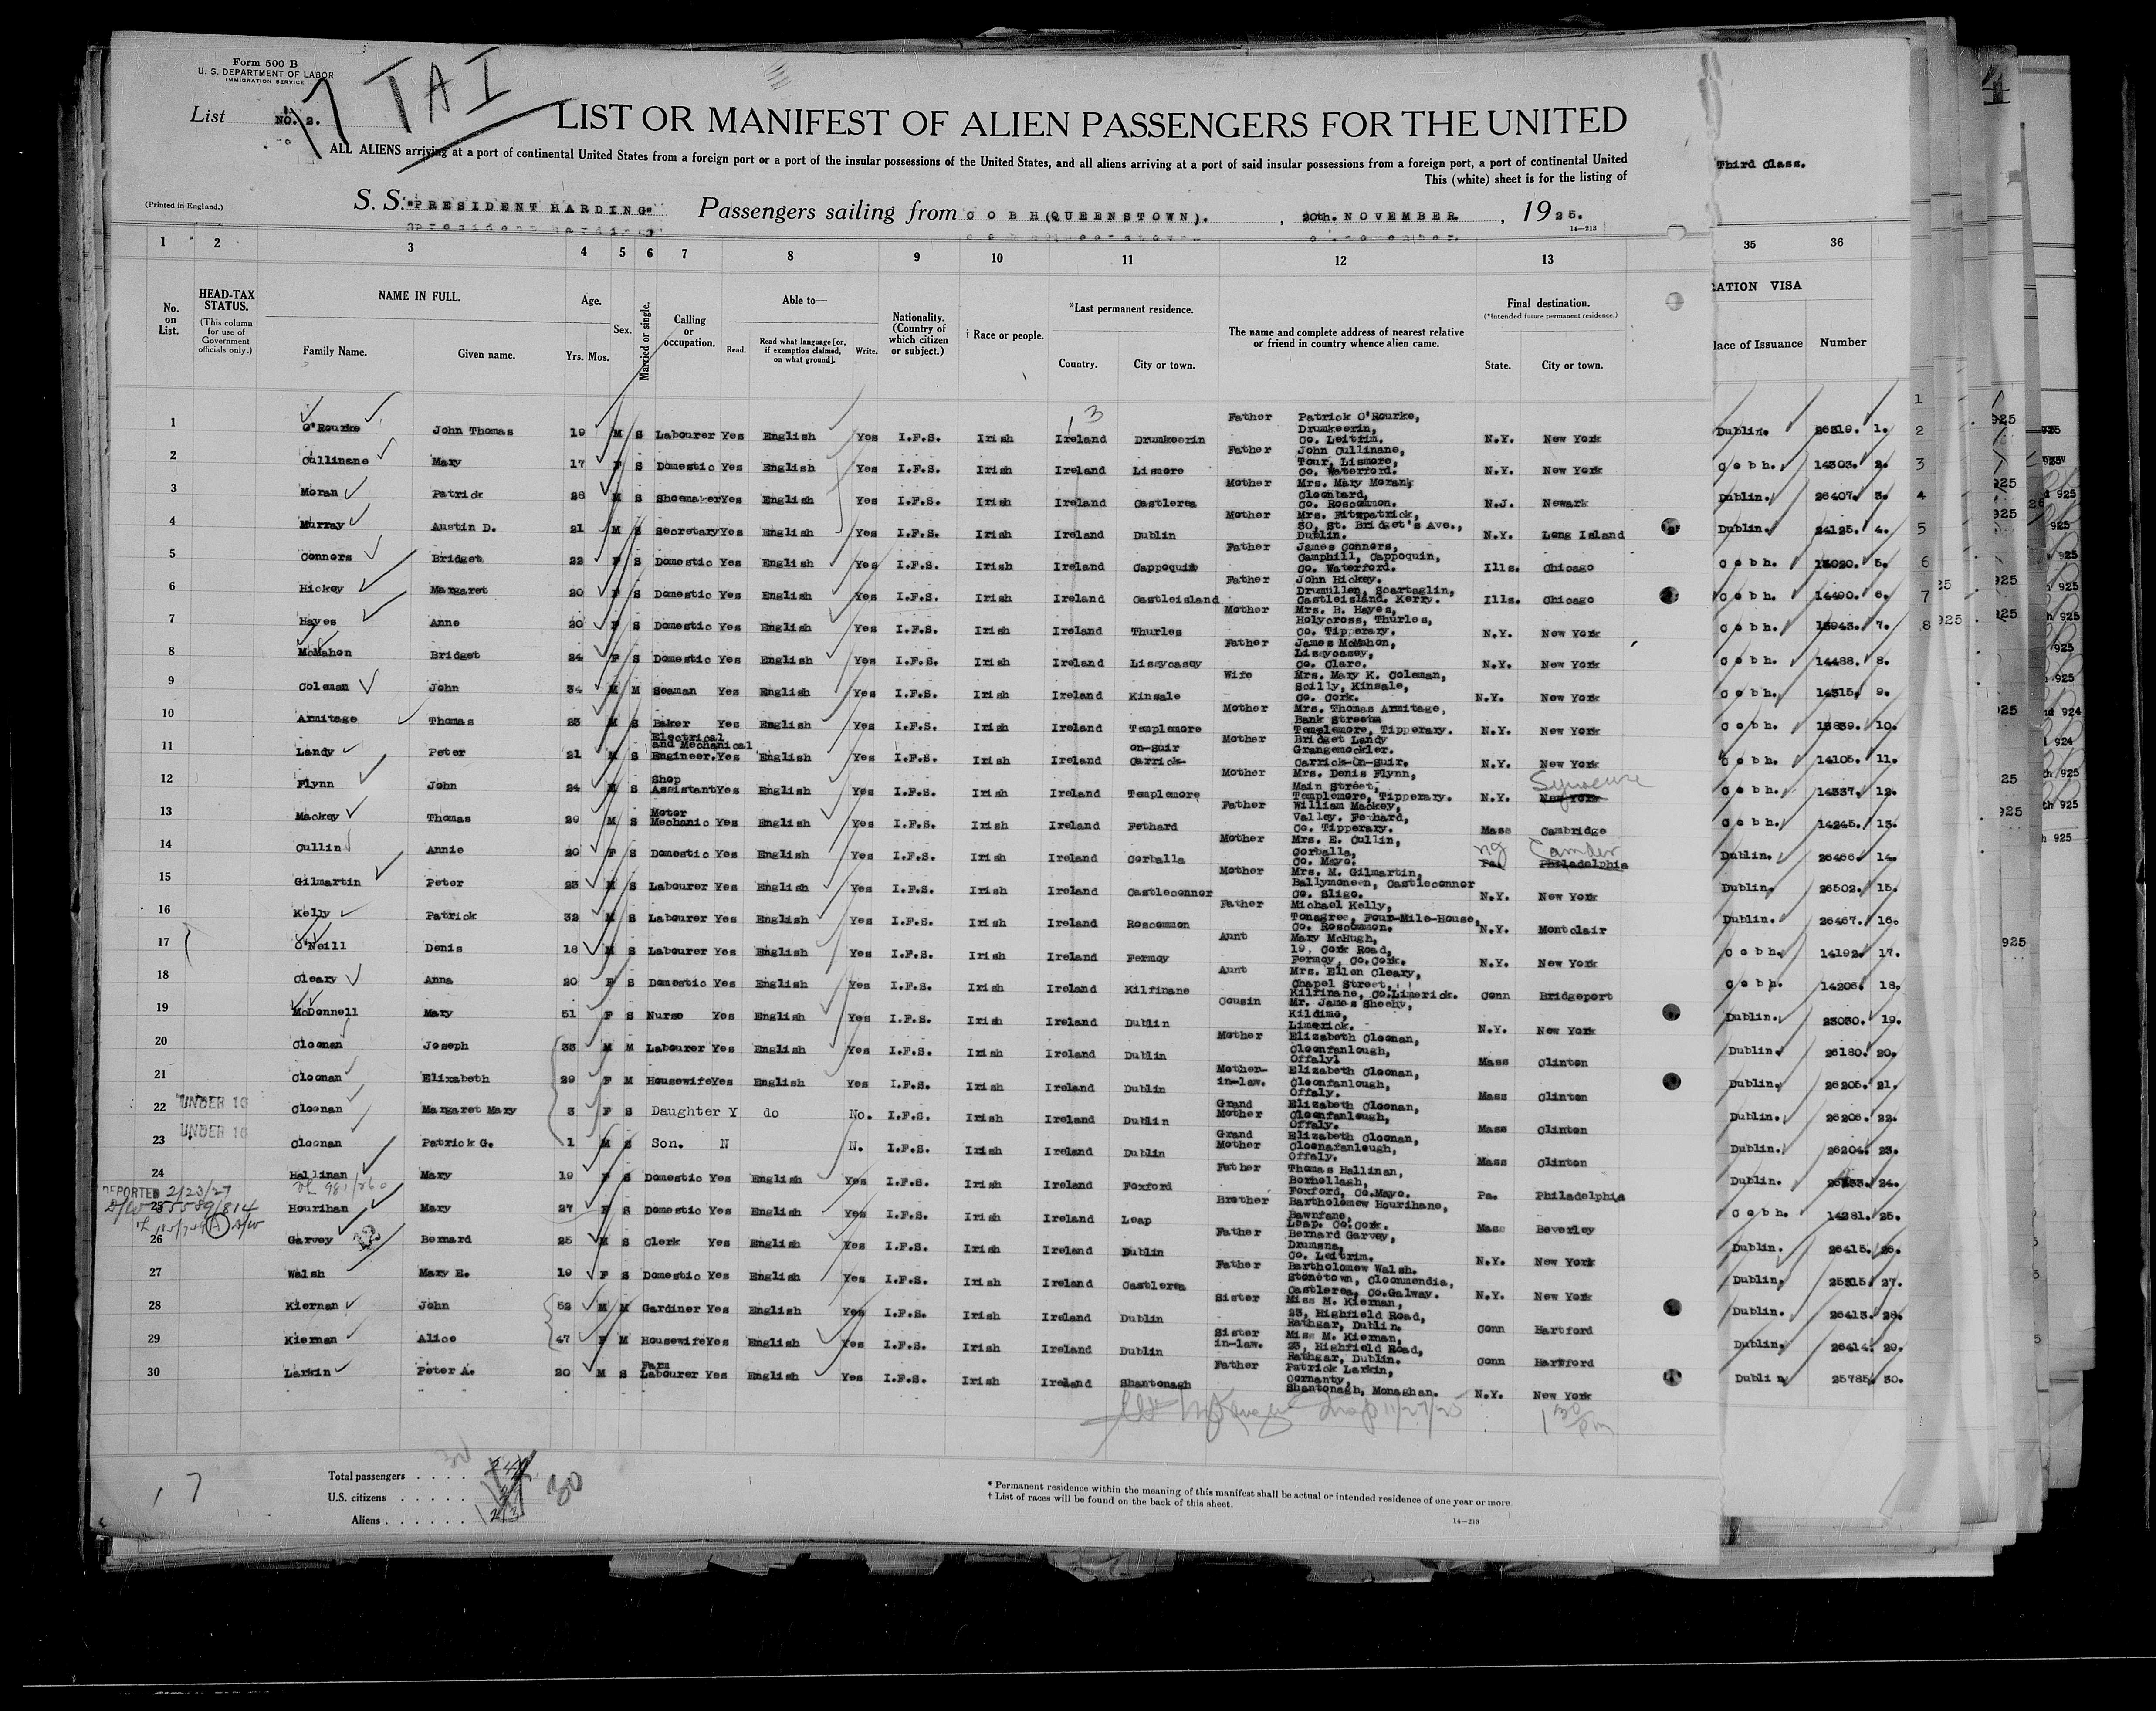 Form 500 B
U. S. DEPARTMENT OF LABOR
IMMIGRATION SERVICE
List NO. 2.
7 TAI
LIST OR MANIFEST OF ALIEN PASSENGERS FOR THE UNITED
ALL ALIENS arriving at a port of continental United States from a foreign port or a port of the insular possessions of the United States, and all aliens arriving at a port of said insular possessions from a foreign port, a port of continental United
This (white) sheet is for the listing of
Third Class.
(Printed in England.)
S. S. "PRESIDENT HARDING" Passengers sailing from COBH (QUEENSTOWN). , 20th. NOVEMBER. , 1925.
14—213
1 2 3 4 5 6 7 8 9 10 11 12 13 35 36
No. on List.
HEAD-TAX STATUS.
(This column for use of Government officials only.)
NAME IN FULL.
Family Name. Given name.
Age.
Yrs. Mos.
Sex.
Married or single.
Calling or occupation.
Able to—
Read. Read what language [or, if exemption claimed, on what ground]. Write.
Nationality. (Country of which citizen or subject.)
† Race or people.
*Last permanent residence.
Country. City or town.
The name and complete address of nearest relative or friend in country whence alien came.
Final destination.
(*Intended future permanent residence.)
State. City or town.
RATION VISA
lace of Issuance Number
3
1 O'Rourke John Thomas 19 M S Labourer Yes English Yes I.F.S. Irish Ireland Drumkeerin Father Patrick O'Rourke, Drumkeerin, Co. Leitrim. N.Y. New York Dublin. 26319. 1.
2 Cullinane Mary 17 F S Domestic Yes English Yes I.F.S. Irish Ireland Lismore Father John Cullinane, Tour, Lismore, Co. Waterford. N.Y. New York Cobh. 14303. 2.
3 Moran Patrick 28 M S Shoemaker Yes English Yes I.F.S. Irish Ireland Castlerea Mother Mrs. Mary Moran, Cloontard, Co. Roscommon. N.J. Newark Dublin. 26407. 3.
4 Murray Austin D. 21 M S Secretary Yes English Yes I.F.S. Irish Ireland Dublin Mother Mrs. Fitzpatrick, 30, St. Bridget's Ave., Dublin. N.Y. Long Island Dublin. 24125. 4.
5 Connors Bridget 22 F S Domestic Yes English Yes I.F.S. Irish Ireland Cappoquin Father James Connors, Camphill, Cappoquin, Co. Waterford. Ills. Chicago Cobh. 5.
6 Hickey Margaret 20 F S Domestic Yes English Yes I.F.S. Irish Ireland Castleisland Father John Hickey. Drumullen, Scartaglin, Castleisland, Kerry. Ills. Chicago Cobh. 14490. 6.
7 Hayes Anne 20 F S Domestic Yes English Yes I.F.S. Irish Ireland Thurles Mother Mrs. B. Hayes, Holycross, Thurles, Co. Tipperary. N.Y. New York Cobh. 13943. 7.
8 McMahon Bridget 24 F S Domestic Yes English Yes I.F.S. Irish Ireland Lissycasey Father James McMahon, Lissycasey, Co. Clare. N.Y. New York Cobh. 14488. 8.
9 Coleman John 34 M M Seaman Yes English Yes I.F.S. Irish Ireland Kinsale Wife Mrs. Mary K. Coleman, Scilly, Kinsale, Co. Cork. N.Y. New York Cobh. 14315. 9.
10 Armitage Thomas 23 M S Baker Yes English Yes I.F.S. Irish Ireland Templemore Mother Mrs. Thomas Armitage, Bank Street Templemore, Tipperary. N.Y. New York Cobh. 13839. 10.
11 Landy Peter 21 M S Electrical and Mechanical Engineer. Yes English Yes I.F.S. Irish Ireland Carrick-on-Suir Mother Bridget Landy Grangemockler. Carrick-On-Suir. N.Y. New York Cobh. 14105. 11.
12 Flynn John 24 M S Shop Assistant Yes English Yes I.F.S. Irish Ireland Templemore Mother Mrs. Denis Flynn, Main Street, Templemore, Tipperary. N.Y. New York Syracuse Cobh. 14337. 12.
13 Mackey Thomas 29 M S Motor Mechanic Yes English Yes I.F.S. Irish Ireland Fethard Father William Mackey, Valley. Fethard, Co. Tipperary. Mass Cambridge Cobh. 14245. 13.
14 Cullin Annie 20 F S Domestic Yes English Yes I.F.S. Irish Ireland Corballa Mother Mrs. E. Cullin, Corballa, Co. Mayo. Pa. NJ Philadelphia Camden Dublin. 26466. 14.
15 Gilmartin Peter 23 M S Labourer Yes English Yes I.F.S. Irish Ireland Castleconnor Mother Mrs. M. Gilmartin, Ballymoneen, Castleconnor Co. Sligo. N.Y. New York Dublin. 26502. 15.
16 Kelly Patrick 32 M S Labourer Yes English Yes I.F.S. Irish Ireland Roscommon Father Michael Kelly, Tonagree, Four-Mile-House, Co. Roscommon. N.Y. Montclair Dublin. 26467. 16.
17 O'Neill Denis 18 M S Labourer Yes English Yes I.F.S. Irish Ireland Fermoy Aunt Mary McHugh, 19, Cork Road, Fermoy, Co.Cork. N.Y. New York Cobh. 14192. 17.
18 Cleary Anna 20 F S Domestic Yes English Yes I.F.S. Irish Ireland Kilfinane Aunt Mrs. Ellen Cleary, Chapel Street, Kilfinane, Co.Limerick. Conn Bridgeport Cobh. 14206. 18.
19 McDonnell Mary 51 F S Nurse Yes English Yes I.F.S. Irish Ireland Dublin Cousin Mr. James Sheehy, Kildimo, Limerick. N.Y. New York Dublin. 23030. 19.
20 Cloonan Joseph 33 M M Labourer Yes English Yes I.F.S. Irish Ireland Dublin Mother Elizabeth Cloonan, Cloonfanlough, Offaly. Mass Clinton Dublin. 26180. 20.
21 Cloonan Elizabeth 29 F M Housewife Yes English Yes I.F.S. Irish Ireland Dublin Mother-in-law. Elizabeth Cloonan, Cloonfanlough, Offaly. Mass Clinton Dublin. 26205. 21.
22 UNDER 16 Cloonan Margaret Mary 3 F S Daughter Y do No. I.F.S. Irish Ireland Dublin Grand Mother Elizabeth Cloonan, Cloonfanlough, Offaly. Mass Clinton Dublin. 26206. 22.
23 UNDER 16 Cloonan Patrick G. 1 M S Son. N N. I.F.S. Irish Ireland Dublin Grand Mother Elizabeth Cloonan, Cloonafanlough, Offaly. Mass Clinton Dublin. 26204. 23.
24 Hallinan Mary 19 F S Domestic Yes English Yes I.F.S. Irish Ireland Foxford Father Thomas Hallinan, Borhollagh, Foxford, Co.Mayo. Pa. Philadelphia Dublin. 24.
DEPORTED 2/23/27
25 Hourihan Mary 27 F S Domestic Yes English Yes I.F.S. Irish Ireland Leap Brother Bartholomew Hourihane, Bawnfane, Leap. Co.Cork. Mass Beverley Cobh. 14281. 25.
26 Garvey Bernard 25 M S Clerk Yes English Yes I.F.S. Irish Ireland Dublin Father Bernard Garvey, Drumsna, Co. Leitrim. N.Y. New York Dublin. 26415. 26.
27 Walsh Mary E. 19 F S Domestic Yes English Yes I.F.S. Irish Ireland Castlerea Father Bartholomew Walsh. Stonetown, Cloonmendia, Castlerea, Co.Galway. N.Y. New York Dublin. 25315. 27.
28 Kiernan John 52 M M Gardiner Yes English Yes I.F.S. Irish Ireland Dublin Sister Miss M. Kiernan, 23, Highfield Road, Rathgar, Dublin. Conn Hartford Dublin. 26413. 28.
29 Kiernan Alice 47 F M Housewife Yes English Yes I.F.S. Irish Ireland Dublin Sister in-law. Miss M. Kiernan, 23, Highfield Road, Rathgar, Dublin. Conn Hartford Dublin. 26414. 29.
30 Larkin Peter A. 20 M S Farm Labourer Yes English Yes I.F.S. Irish Ireland Shantonagh Father Patrick Larkin, Cornanty, Shantonagh, Monaghan. N.Y. New York Dublin 25785. 30.
11/27/25 1 30 pm
Total passengers . . . . 30
U.S. citizens . . . . .
Aliens . . . . . .
17
* Permanent residence within the meaning of this manifest shall be actual or intended residence of one year or more
† List of races will be found on the back of this sheet.
14—213